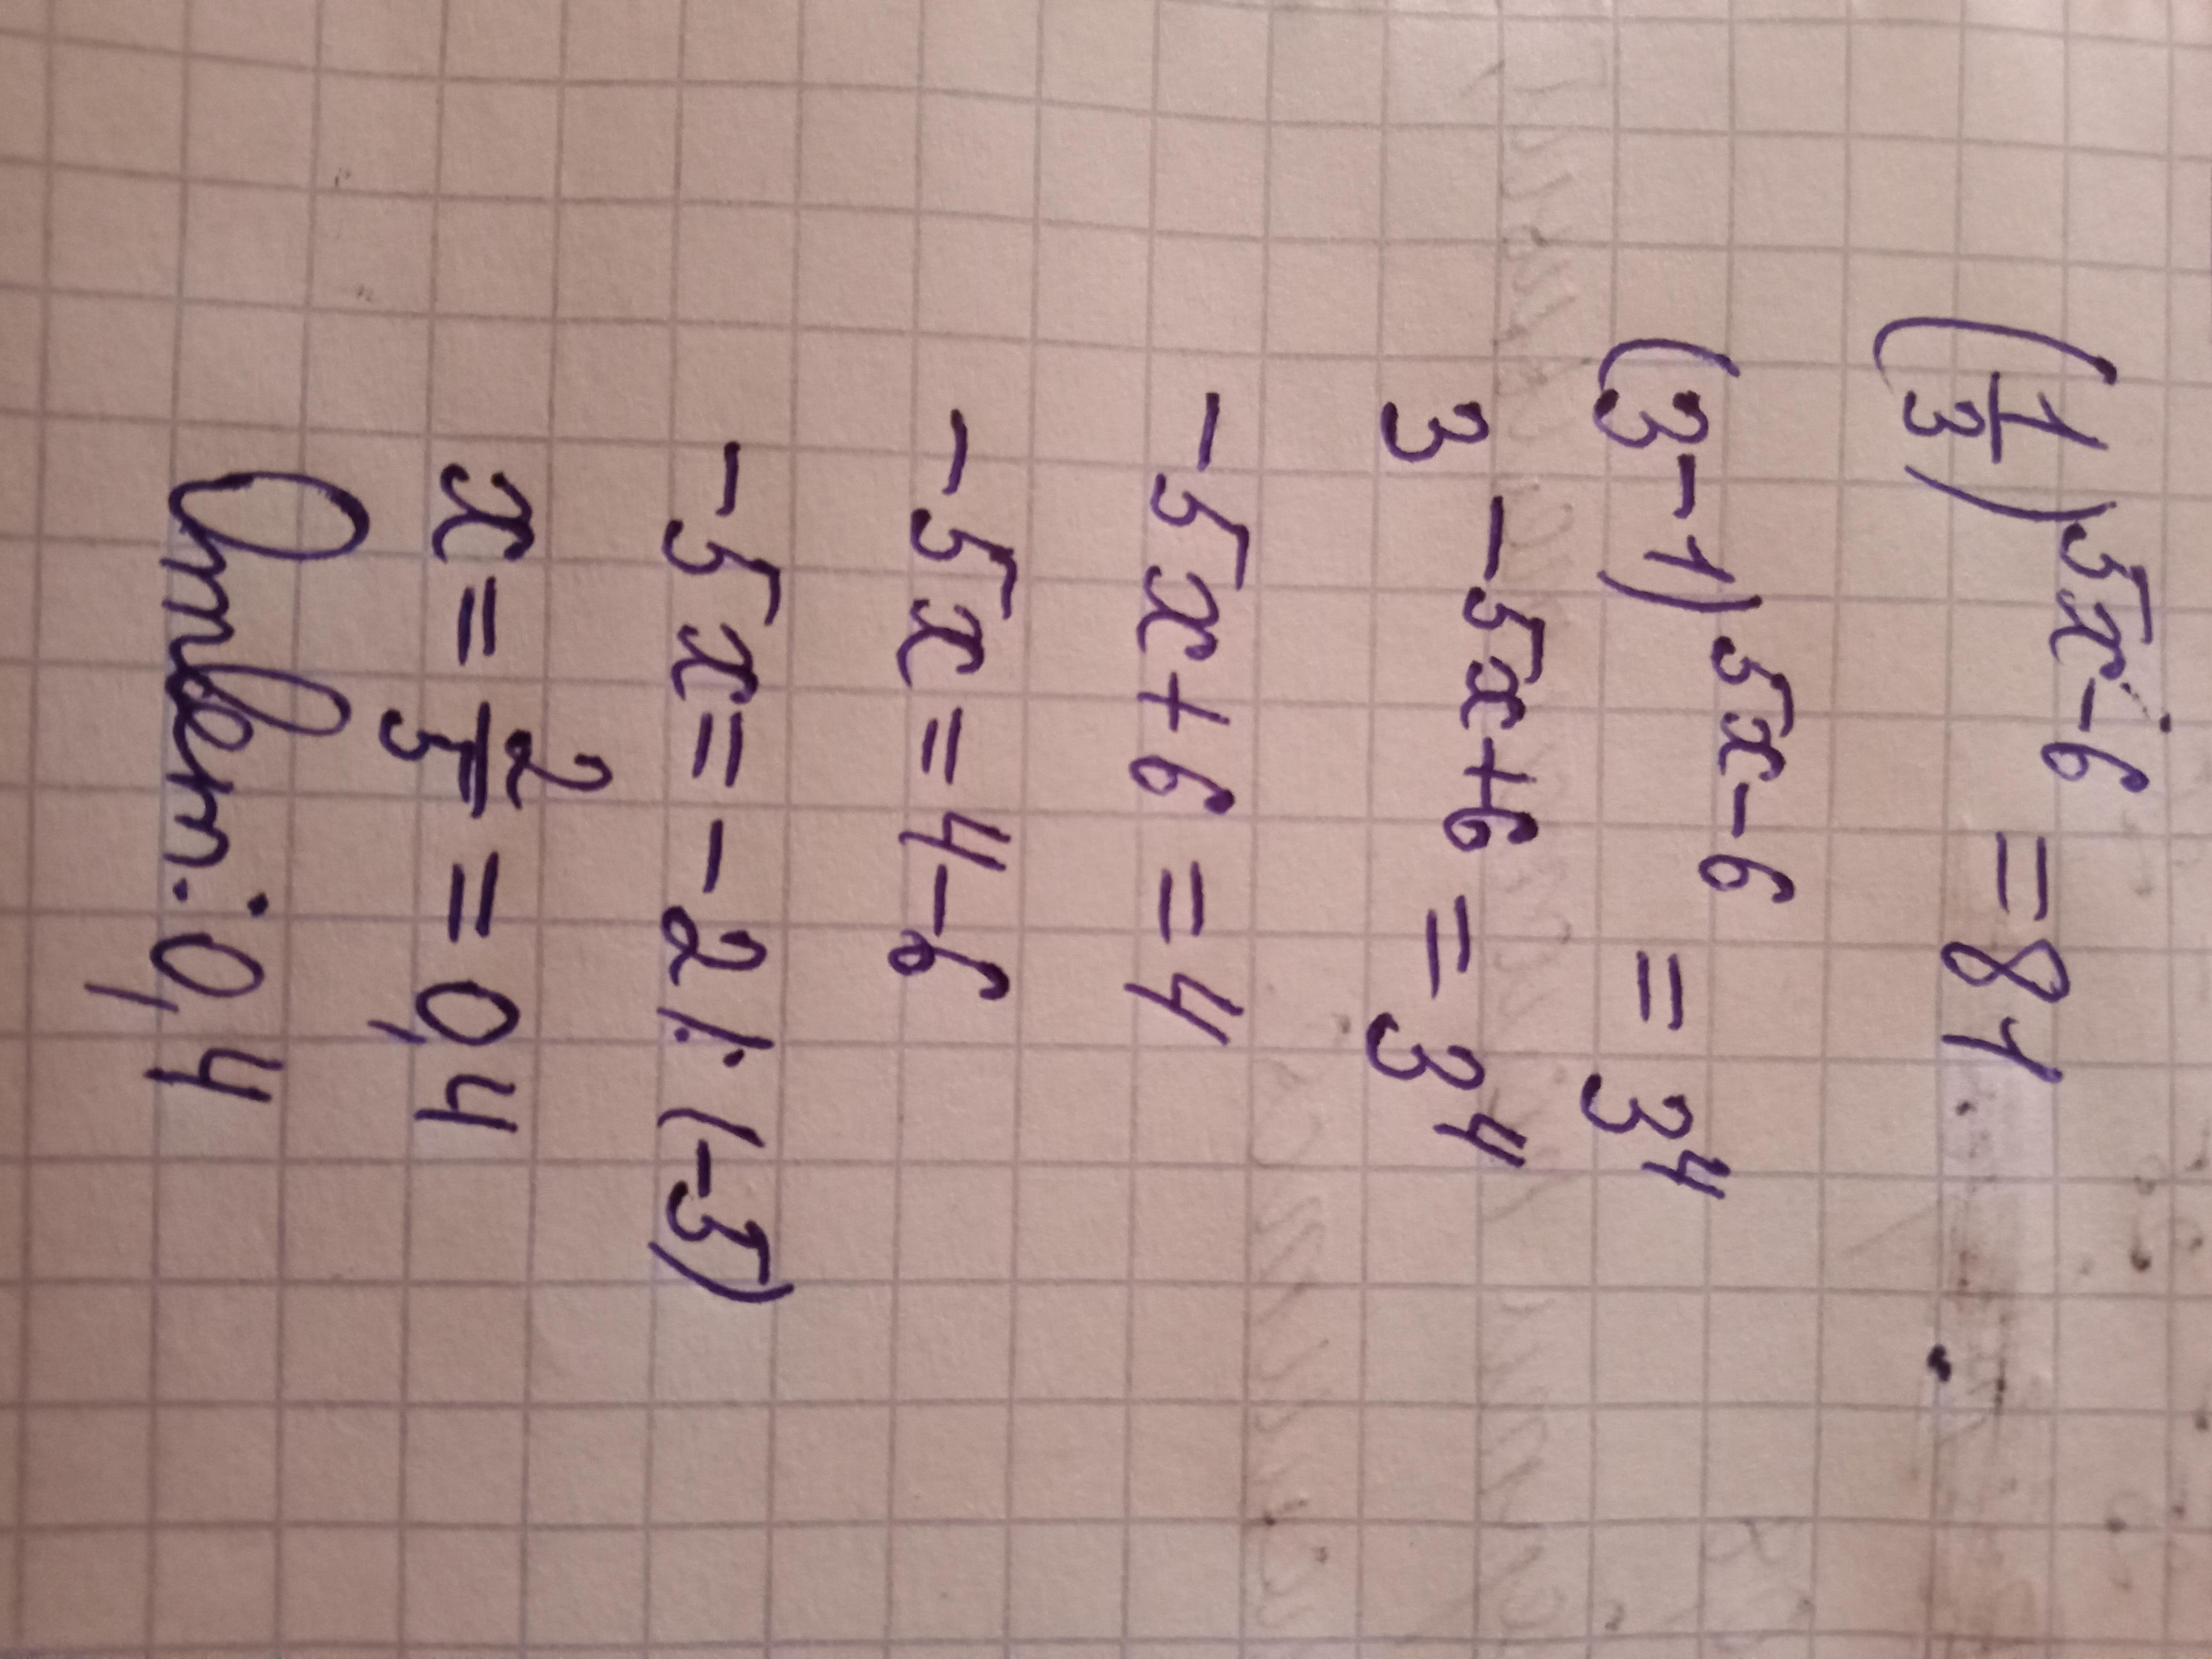 (1/3)^5x-6 = 81
(3-1)^5x-6 = 3^4
3^-5x+6 = 3^4
-5x+6 = 4
-5x = 4-6
-5x = -2 |:(-5)
x = 2/5 = 0,4
Ответ: 0,4